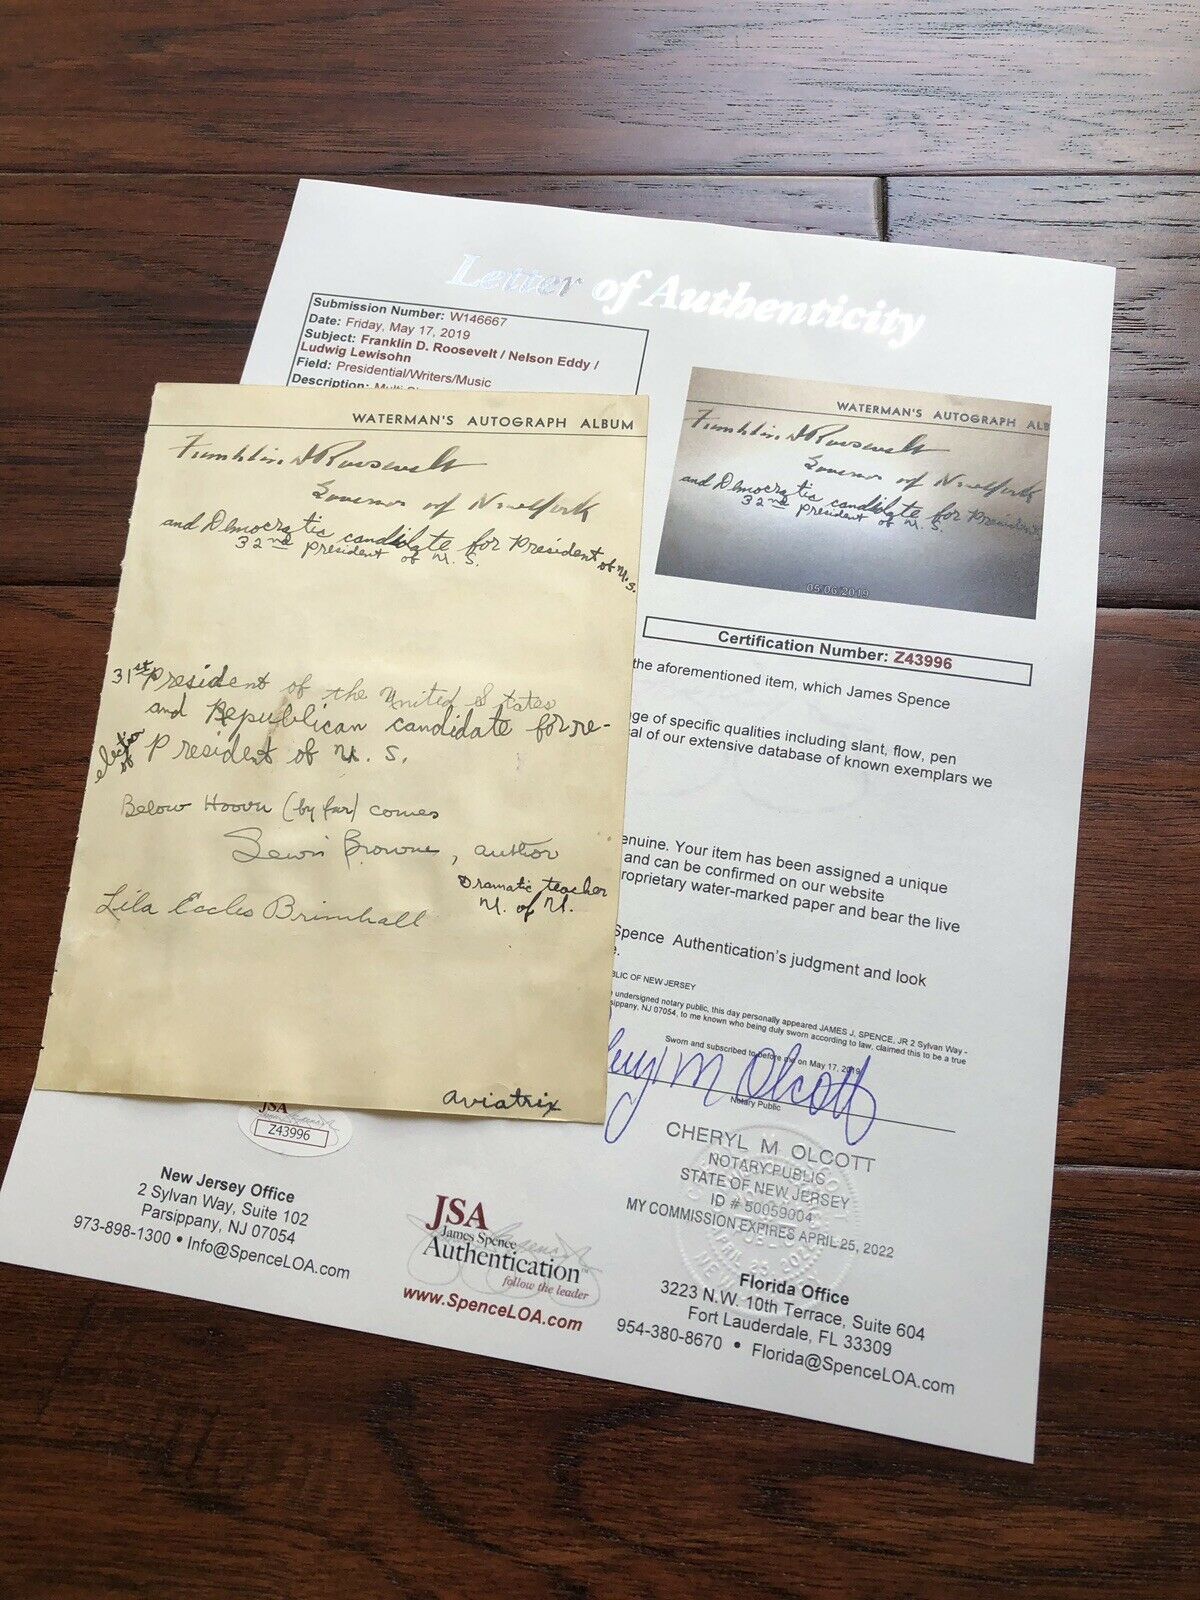 Letter of Authenticity
Submission Number: W146667
Date: Friday, May 17, 2019
Subject: Franklin D. Roosevelt / Nelson Eddy /
Ludwig Lewisohn
Field: Presidential/Writers/Music
Description:
WATERMAN'S AUTOGRAPH ALBUM
Franklin D Roosevelt
Governor of New York
and Democratic candidate for President of U.S.
32nd President of U.S.
31st President of the United States
and Republican candidate for re-
election of President of U.S.
Below Hoover (by far) comes
Lewis Browne, author
Dramatic teacher
U. of U.
Lila Eccles Brimhall
aviatrix
WATERMAN'S AUTOGRAPH ALB
Franklin D Roosevelt
Governor of New York
and Democratic candidate for President
32nd President of U.S.
05/06/2019
Certification Number: Z43996
the aforementioned item, which James Spence
ge of specific qualities including slant, flow, pen
al of our extensive database of known exemplars we
enuine. Your item has been assigned a unique
and can be confirmed on our website
roprietary water-marked paper and bear the live
Spence Authentication's judgment and look
e.
BLIC OF NEW JERSEY
undersigned notary public, this day personally appeared JAMES J. SPENCE, JR 2 Sylvan Way -
sippany, NJ 07054, to me known who being duly sworn according to law, claimed this to be a true
Sworn and subscribed to before me on May 17, 2019
M Olcott
Notary Public
CHERYL M OLCOTT
NOTARY PUBLIC
STATE OF NEW JERSEY
ID # 50059004
MY COMMISSION EXPIRES APRIL 25, 2022
JSA
Z43996
New Jersey Office
2 Sylvan Way, Suite 102
Parsippany, NJ 07054
973-898-1300 • Info@SpenceLOA.com
JSA
James Spence
Authentication
follow the leader
www.SpenceLOA.com
Florida Office
3223 N.W. 10th Terrace, Suite 604
Fort Lauderdale, FL 33309
954-380-8670 • Florida@SpenceLOA.com